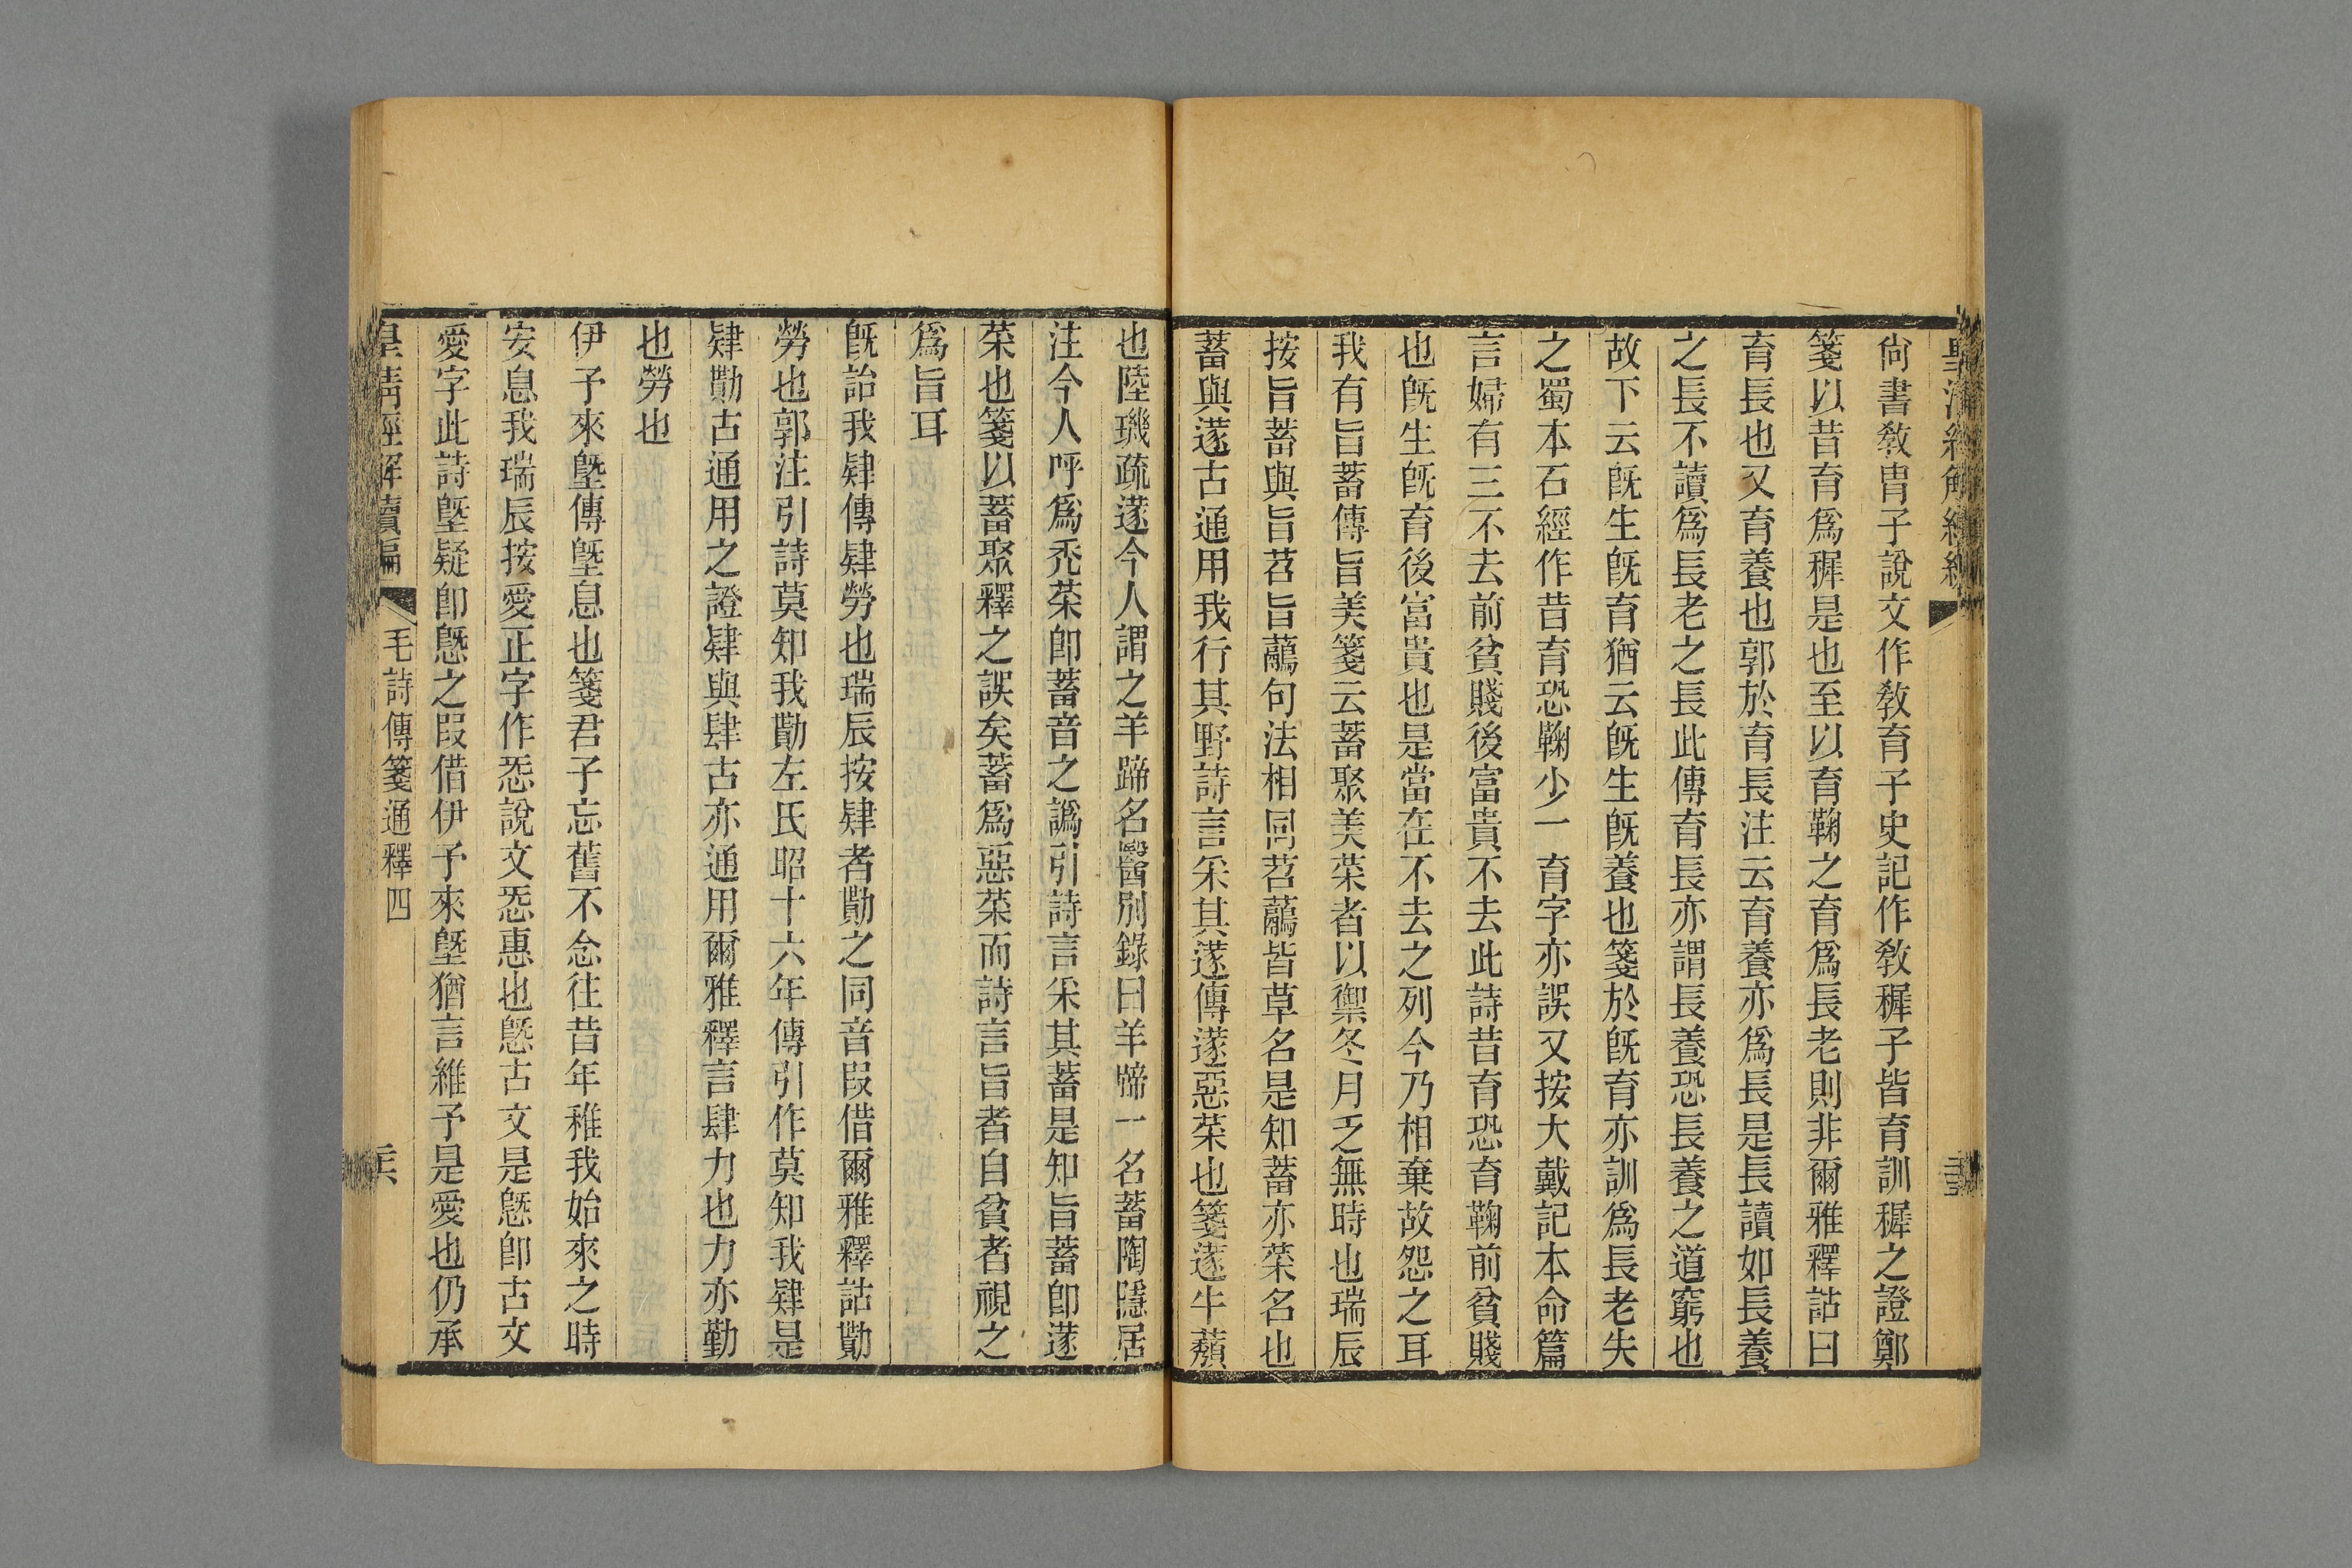 尙書敎胄子說文作敎育子史記作敎穉子皆育訓穉之證鄭
箋以昔育爲穉是也至以育鞠之育爲長老則非爾雅釋詁曰
育長也又育養也郭於育長注云育養亦爲長是長讀如長養
之長不讀爲長老之長此傳育長亦謂長養恐長養之道窮也
故下云旣生旣育猶云旣生旣養也箋於旣育亦訓爲長老失
之蜀本石經作昔育恐鞠少一育字亦誤又按大戴記本命篇
言婦有三不去前貧賤後富貴不去此詩昔育恐育鞠前貧賤
也旣生旣育後富貴也是當在不去之列今乃相棄故怨之耳
我有旨蓄傳旨美箋云蓄聚美菜者以禦冬月乏無時也瑞辰
按旨蓄與旨苕旨鷊句法相同苕鷊皆草名是知蓄亦菜名也
蓄與蓫古通用我行其野詩言采其蓫傳蓫惡菜也箋蓫牛蘈
也陸璣疏蓫今人謂之羊蹄名醫別錄曰羊蹄一名蓄陶隱居
注今人呼爲禿菜卽蓄音之譌引詩言采其蓄是知旨蓄卽蓫
菜也箋以蓄聚釋之誤矣蓄爲惡菜而詩言旨者自貧者視之
爲旨耳
旣詒我肄傳肄勞也瑞辰按肄者勩之同音叚借爾雅釋詁勩
勞也郭注引詩莫知我勩左氏昭十六年傳引作莫知我肄是
肄勩古通用之證肄與肆古亦通用爾雅釋言肆力也力亦勤
也勞也
伊予來墍傳墍息也箋君子忘舊不念往昔年稚我始來之時
安息我瑞辰按愛正字作㤅說文㤅惠也㤅古文是㤅卽古文
愛字此詩墍疑卽㤅之叚借伊予來墍猶言維予是愛也仍承
皇淸經解續編　毛詩傳箋通釋四